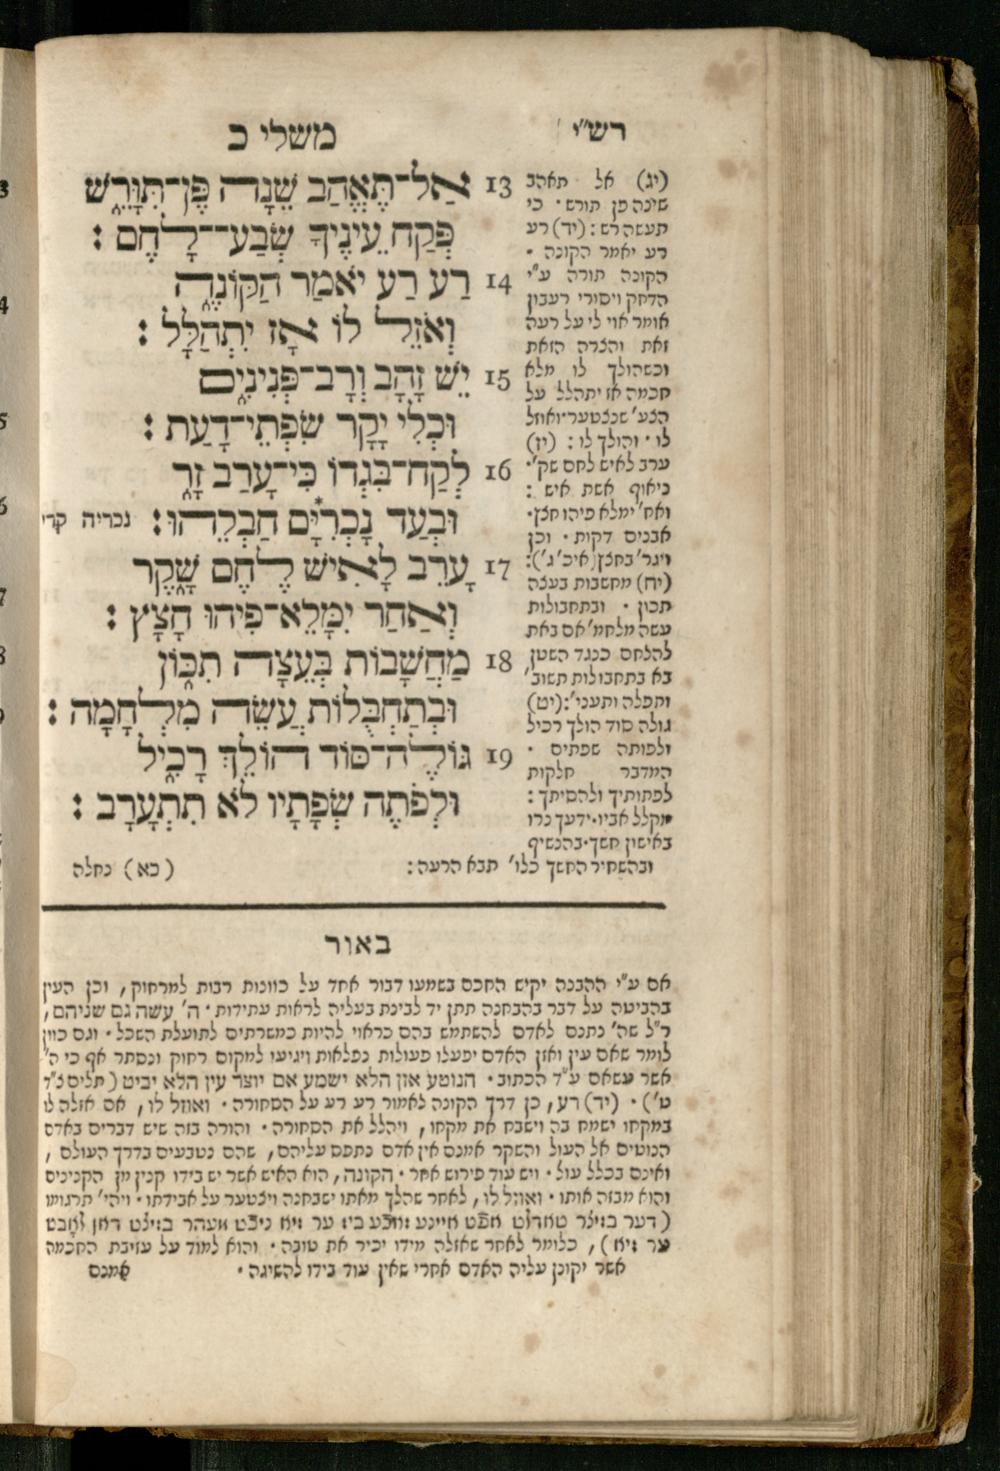 רש״י
משלי כ
13 אַל־תֶּאֱהַב שֵׁנָה פֶּן־תִּוָּרֵשׁ
פְּקַח עֵינֶיךָ שְׂבַע־לָחֶם :
14 רַע רַע יֹאמַר הַקּוֹנֶה
וְאֹזֵל לוֹ אָז יִתְהַלָּל :
15 יֵשׁ זָהָב וְרָב־פְּנִינִים
וּכְלִי יְקָר שִׂפְתֵי־דָעַת :
16 לְקַח־בִּגְדוֹ כִּי־עָרַב זָר
וּבְעַד נָכְרִיָּם* חַבְלֵהוּ : נכריה קרי
17 עָרֵב לָאִישׁ לֶחֶם שָׁקֶר
וְאַחַר יִמָּלֵא־פִיהוּ חָצָץ :
18 מַחֲשָׁבוֹת בְּעֵצָה תִכּוֹן
וּבְתַחְבֻּלוֹת עֲשֵׂה מִלְחָמָה :
19 גּוֹלֶה־סּוֹד הוֹלֵךְ רָכִיל
וּלְפֹתֶה שְׂפָתָיו לֹא תִתְעָרָב :
(יג) אל תאהב
שינה פן תורש · כי
תעשה רש : (יד) רע
רע יאמר הקונה ·
הקונה תורה ע״י
הדחק ויסורי רעבון
אומר אוי לי על רעה
זאת והצרה הזאת
וכשהולך לו מלא
חכמה אז יתהלל על
הצע׳ שנצטער · ואוזל
לו · והולך לו : (יז)
ערב לאיש לחם שק׳ ·
ניאוף אשת איש :
ואח׳ ימלא פיהו חצץ ·
אבנים דקות · וכן
ויגר׳ בחצץ (איכ׳ ג׳) :
(יח) מחשבות בעצה
תכון · ובתחבולות
עשה מלחמ׳ אם באת
להלחם כנגד השטן
בא בתחבולות תשוב׳
ותפלה ותעני׳ : (יט)
גולה סוד הולך רכיל
ולפותה שפתים ·
המדבר חלקות
לפתותיך ולהסיתך :
מקלל אביו · ידעך נרו
באישון חשך · בהנשיף
ובהשחיר החשך כלו׳ תבא הרעה : (כא) נחלה
באור
אם ע״י ההבנה יקיש החכם בשמעו דבור אחד על כוונות רבות למרחוק , וכן העין
בהביטה על דבר בהבחנה תתן יד לבינת בעליה לראות עתידות · ה׳ עשה גם שניהם ,
ר״ל שה׳ נתנם לאדם להשתמש בהם כראוי להיות כמשרתים לתועלת השכל · וגם כוון
לומר שאם עין ואזן האדם יפעלו פעולות נפלאות ויגיעו למקום רחוק ונסתר אף כי ה׳
אשר עשאם ע״ד הכתוב · הנוטע אזן הלא ישמע אם יוצר עין הלא יביט (תלים צ״ד
ט׳) · (יד) רע , כן דרך הקונה לאמור רע רע על הסחורה · ואוזל לו , אם אזלה לו
במקחו ישמח בה וישבח את מקחו , ויהלל את הסחורה · והורה בזה שיש דברים באדם
הנוטים אל העול והשקר אמנם אין אדם נתפס עליהם , שהם נטבעים בדרך העולם ,
ואינם בכלל עול · ויש עוד פירוש אחר · הקונה , הוא האיש אשר יש בידו קנין מן הקנינים
והוא מבזה אותו · ואוזל לו , לאחר שהלך מאתו ישבחנה ויצטער על אבידתו · ויהי׳ תרגומו
ער איז ) , כלומר לאחר שאזלה מידו יכיר את טובה · והוא למוד על עזיבת החכמה
אשר יקונן עליה האדם אחרי שאין עוד בידו להשיגה · אמנם